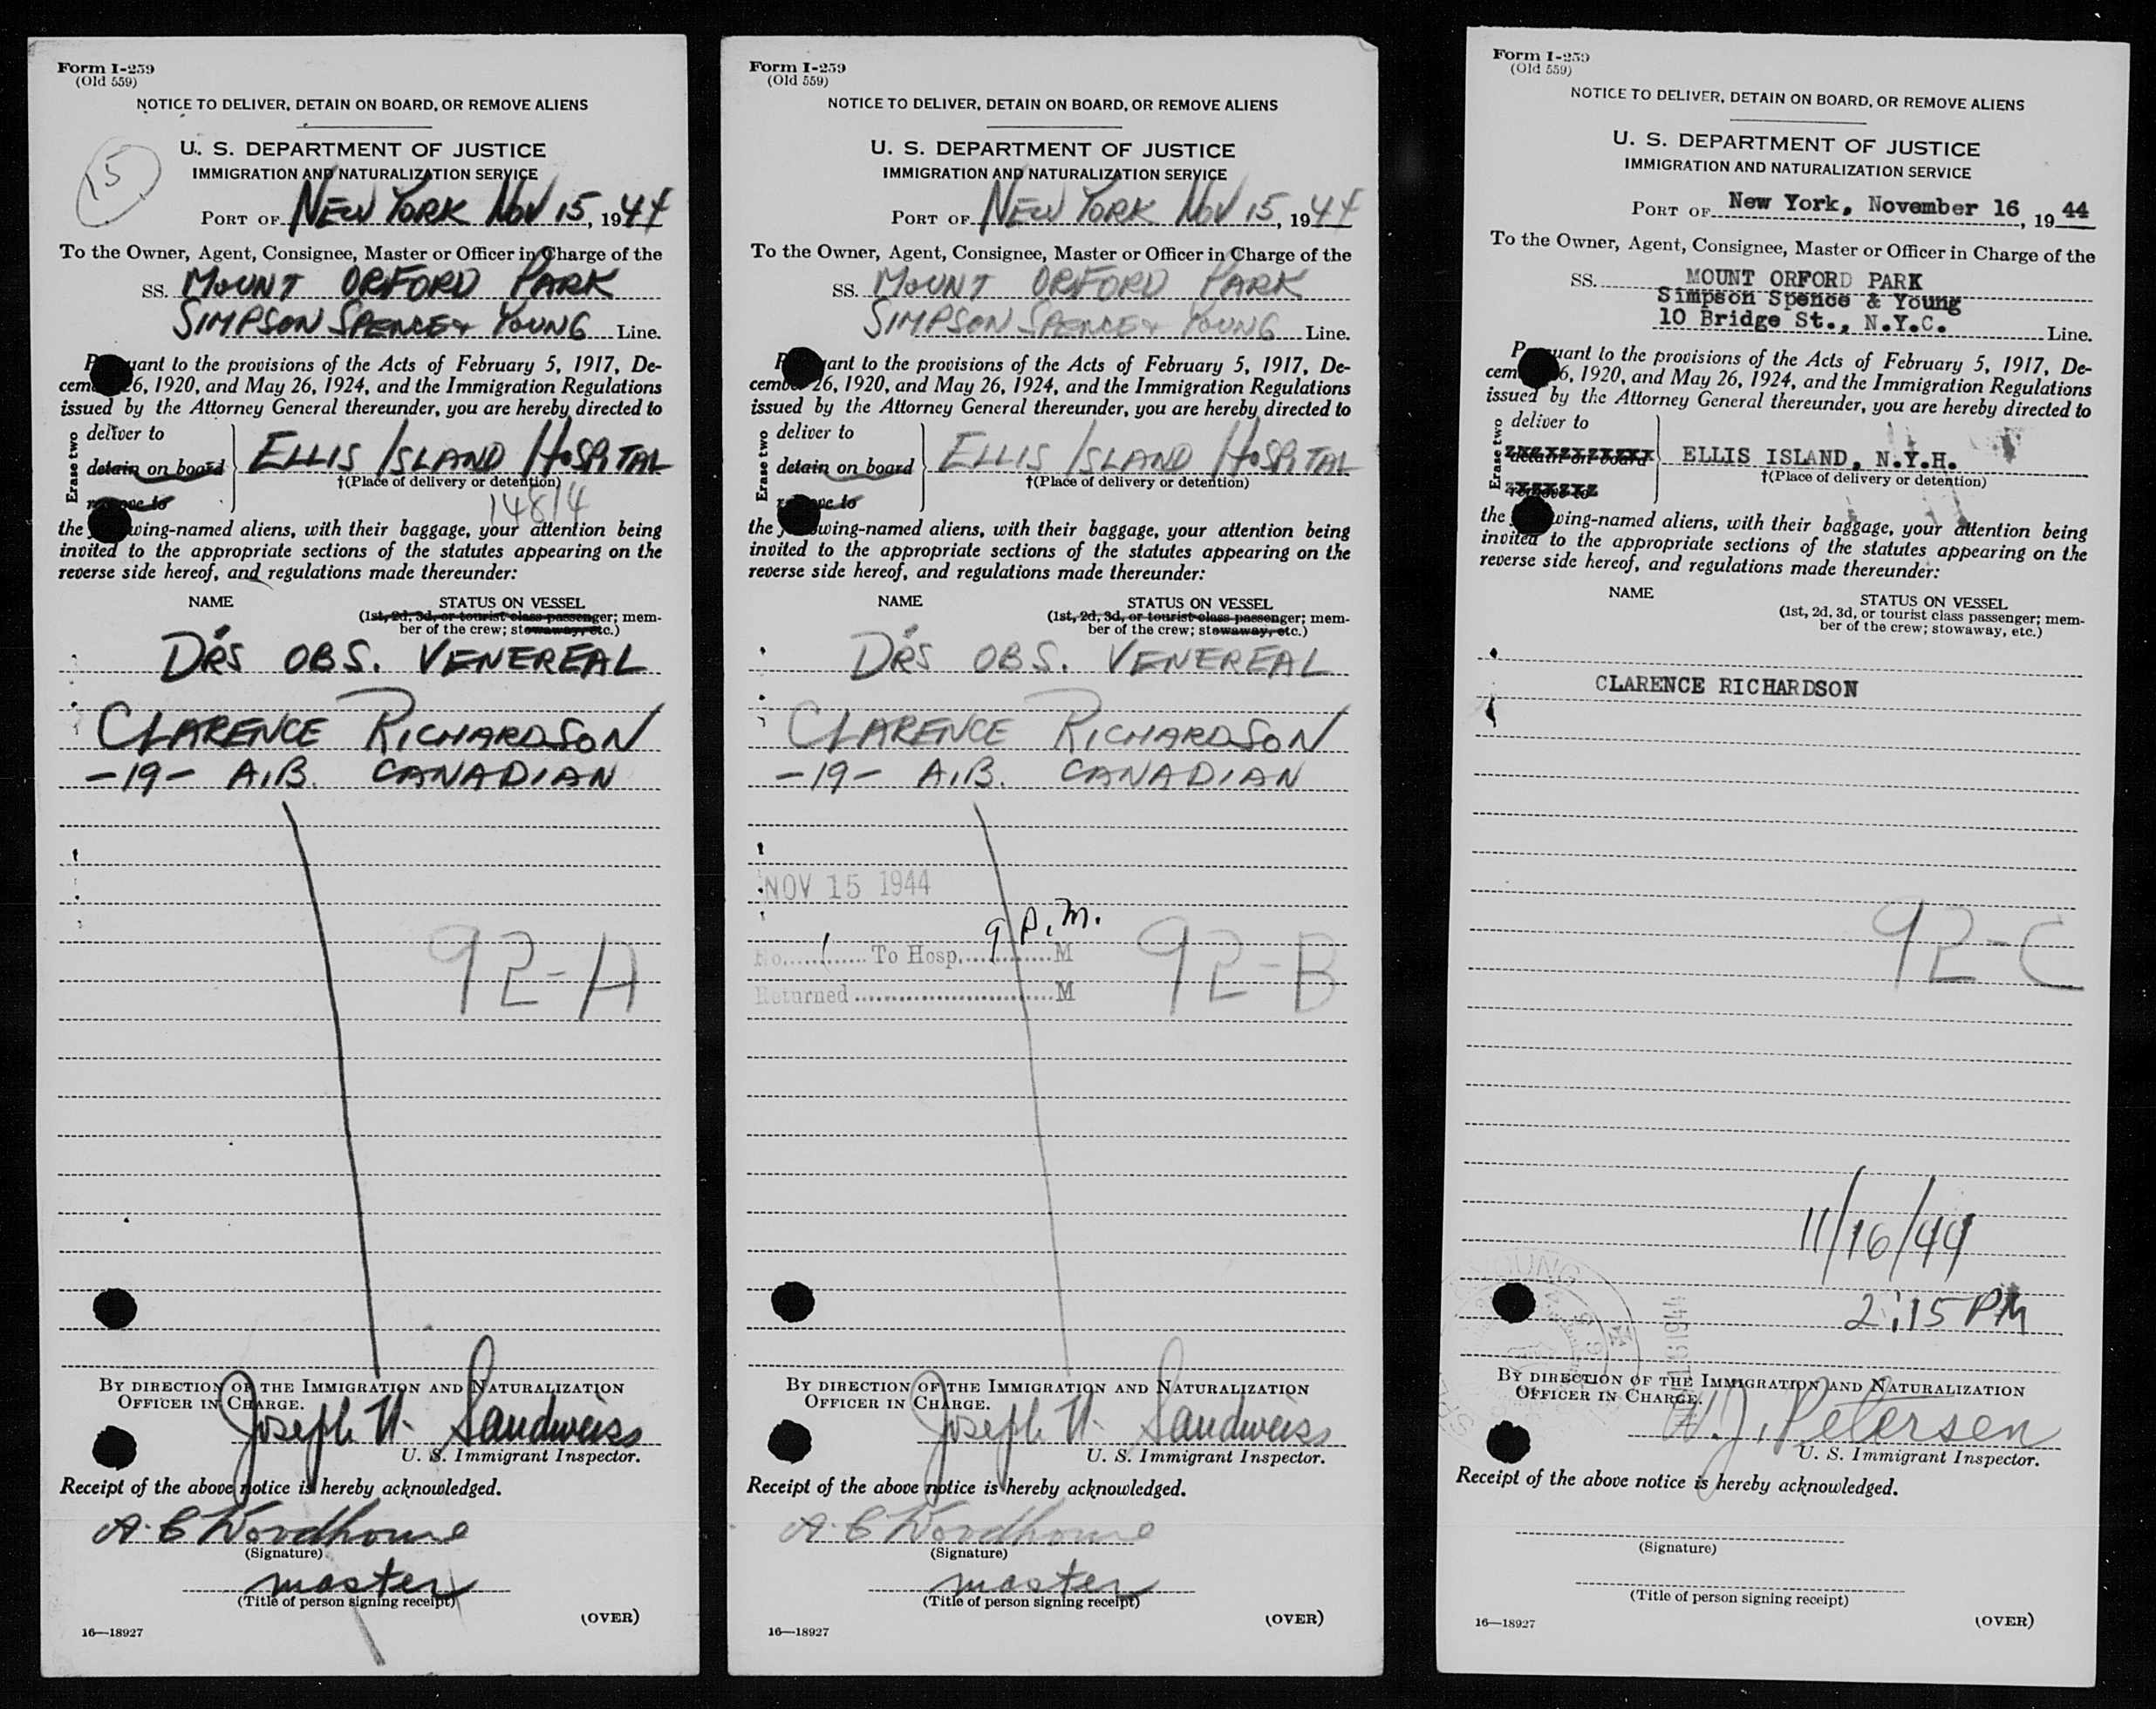 Form I-259
(Old 559)
NOTICE TO DELIVER, DETAIN ON BOARD, OR REMOVE ALIENS
15
U. S. DEPARTMENT OF JUSTICE
IMMIGRATION AND NATURALIZATION SERVICE
PORT OF NEW YORK NOV 15, 1944
To the Owner, Agent, Consignee, Master or Officer in Charge of the
SS. MOUNT ORFORD PARK
SIMPSON SPENCE & YOUNG Line.
P uant to the provisions of the Acts of February 5, 1917, De-
cem 26, 1920, and May 26, 1924, and the Immigration Regulations
issued by the Attorney General thereunder, you are hereby directed to
Erase two
deliver to
detain on board
remove to
ELLIS ISLAND HOSPITAL
†(Place of delivery or detention)
14814
the wing-named aliens, with their baggage, your attention being
invited to the appropriate sections of the statutes appearing on the
reverse side hereof, and regulations made thereunder:
NAME STATUS ON VESSEL
(1st, 2d, 3d, or tourist class passenger; mem-
ber of the crew; stowaway, etc.)
DRS OBS. VENEREAL
CLARENCE RICHARDSON
-19- A.B. CANADIAN
92-A
BY DIRECTION OF THE IMMIGRATION AND NATURALIZATION
OFFICER IN CHARGE.
Joseph H. Sandweiss
U. S. Immigrant Inspector.
Receipt of the above notice is hereby acknowledged.
A. C Woodhouse
(Signature)
master
(Title of person signing receipt)
(OVER)
16—18927
Form I-259
(Old 559)
NOTICE TO DELIVER, DETAIN ON BOARD, OR REMOVE ALIENS
U. S. DEPARTMENT OF JUSTICE
IMMIGRATION AND NATURALIZATION SERVICE
PORT OF NEW YORK NOV 15, 1944
To the Owner, Agent, Consignee, Master or Officer in Charge of the
SS. MOUNT ORFORD PARK
SIMPSON SPENCE & YOUNG Line.
P uant to the provisions of the Acts of February 5, 1917, De-
cember 26, 1920, and May 26, 1924, and the Immigration Regulations
issued by the Attorney General thereunder, you are hereby directed to
Erase two
deliver to
detain on board
remove to
ELLIS ISLAND HOSPITAL
†(Place of delivery or detention)
the wing-named aliens, with their baggage, your attention being
invited to the appropriate sections of the statutes appearing on the
reverse side hereof, and regulations made thereunder:
NAME STATUS ON VESSEL
(1st, 2d, 3d, or tourist class passenger; mem-
ber of the crew; stowaway, etc.)
DRS OBS. VENEREAL
CLARENCE RICHARDSON
-19- A.B. CANADIAN
NOV 15 1944
No. 1 To Hosp. 9 P.M. M
Returned M
92-B
BY DIRECTION OF THE IMMIGRATION AND NATURALIZATION
OFFICER IN CHARGE.
Joseph H. Sandweiss
U. S. Immigrant Inspector.
Receipt of the above notice is hereby acknowledged.
A. C Woodhouse
(Signature)
master
(Title of person signing receipt)
(OVER)
16—18927
Form I-259
(Old 559)
NOTICE TO DELIVER, DETAIN ON BOARD, OR REMOVE ALIENS
U. S. DEPARTMENT OF JUSTICE
IMMIGRATION AND NATURALIZATION SERVICE
PORT OF New York, November 16, 1944
To the Owner, Agent, Consignee, Master or Officer in Charge of the
SS. MOUNT ORFORD PARK
Simpson Spence & Young
10 Bridge St., N.Y.C. Line.
P uant to the provisions of the Acts of February 5, 1917, De-
cem 26, 1920, and May 26, 1924, and the Immigration Regulations
issued by the Attorney General thereunder, you are hereby directed to
Erase two
deliver to
detain on board
remove to
ELLIS ISLAND, N.Y.H.
†(Place of delivery or detention)
the wing-named aliens, with their baggage, your attention being
invited to the appropriate sections of the statutes appearing on the
reverse side hereof, and regulations made thereunder:
NAME STATUS ON VESSEL
(1st, 2d, 3d, or tourist class passenger; mem-
ber of the crew; stowaway, etc.)
CLARENCE RICHARDSON
92-C
11/16/44
2:15 PM
BY DIRECTION OF THE IMMIGRATION AND NATURALIZATION
OFFICER IN CHARGE.
W. J. Petersen
U. S. Immigrant Inspector.
Receipt of the above notice is hereby acknowledged.
(Signature)
(Title of person signing receipt)
(OVER)
16—18927